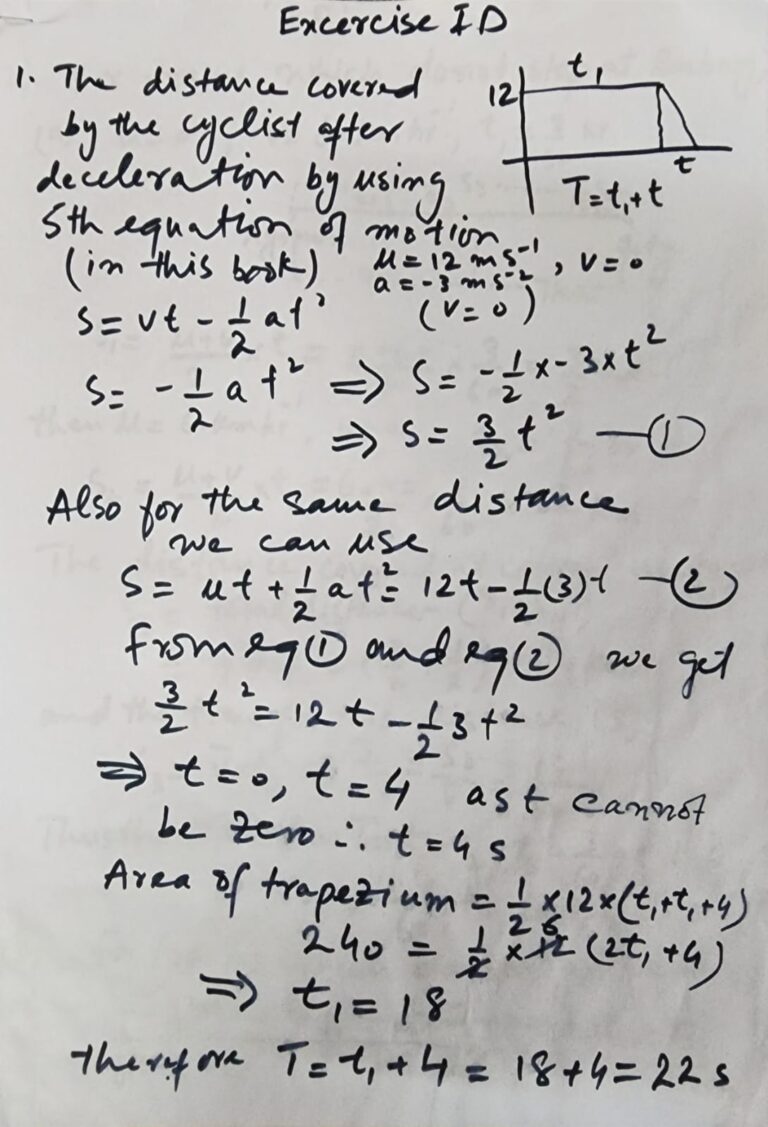 Excercise 1D
1. The distance covered
by the cyclist after
deceleration by using
5th equation of motion
(in this book)
12
t₁
t
T=t₁+t
u = 12 ms⁻¹, v=0
a = -3 ms⁻²
(v=0)
S = vt - 1/2 at²
S = - 1/2 at² ⇒ S = -1/2 x - 3xt²
⇒ S = 3/2 t² —①
Also for the same distance
we can use
S = ut + 1/2 at² = 12t - 1/2(3)t —②
from eq① and eq② we get
3/2 t² = 12t - 1/2 3t²
⇒ t=0, t=4 as t cannot
be zero ∴ t=4 s
Area of trapezium = 1/2 x12x(t₁+t₁+4)
240 = 1/2 x 12 6 (2t₁+4)
⇒ t₁ = 18
therefore T = t₁+4 = 18+4 = 22 s